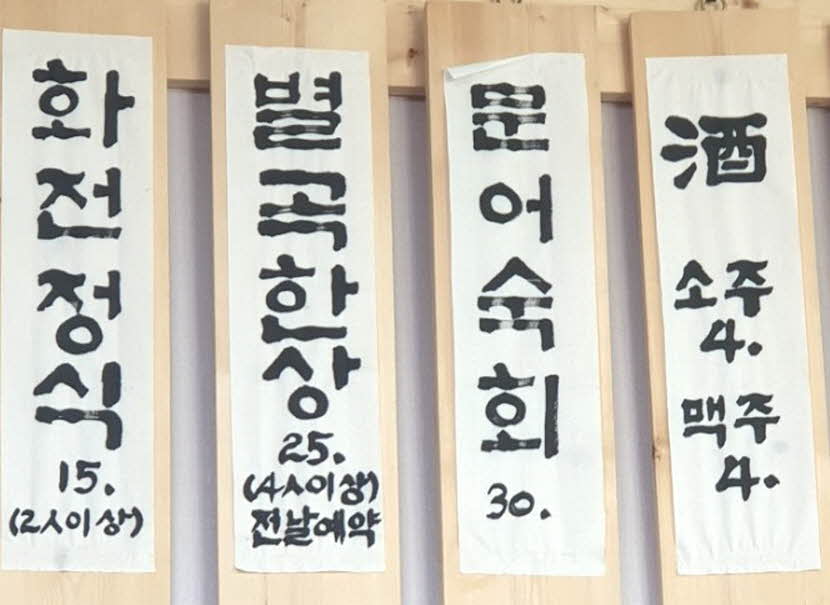 화전정식
15.
(2人이상)
별곡한상
25.
(4人이상)
전날예약
문어숙회
30.
酒
소주
4.
맥주
4.